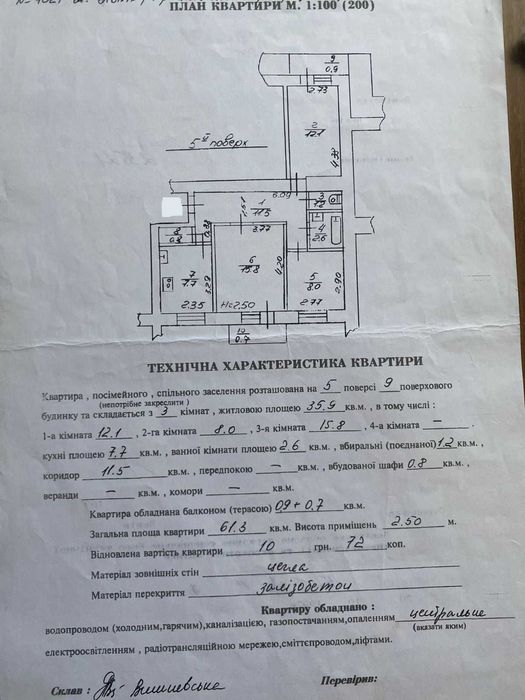 ПЛАН КВАРТИРИ М. 1:100 (200)
9
0,9
2.73
2
12.1
4.38
5й поверх
6.09
1
11.5
1.51
3
1.2
4
2.6
8
0.8
0.38
3.77
7
7.7
3.29
2.35
6
15.8
4.20
Н=2.50
5
8.0
2.90
2.77
10
0.7
ТЕХНІЧНА ХАРАКТЕРИСТИКА КВАРТИРИ
Квартира , посімейного , спільного заселення розташована на 5 поверсі 9 поверхового
(непотрібне закреслити )
будинку та складається з 3 кімнат , житловою площею 35.9 кв.м. , в тому числі :
1-а кімната 12.1 , 2-га кімната 8.0 , 3-я кімната 15.8 , 4-а кімната — .
кухні площею 7.7 кв.м. , ванної кімнати площею 2.6 кв.м. , вбиральні (поєднаної) 1.2 кв.м. ,
коридор 11.5 кв.м. , передпокою — кв.м. , вбудованої шафи 0.8 кв.м. ,
веранди — кв.м. , комори — кв.м.
Квартира обладнана балконом (терасою) 0.9 + 0.7 кв.м.
Загальна площа квартири 61.3 кв.м. Висота приміщень 2.50 м.
Відновлена вартість квартири 10 грн. 72 коп.
Матеріал зовнішніх стін цегла
Матеріал перекриття залізобетон
Квартиру обладнано :
водопроводом (холодним,гарячим),каналізацією, газопостачанням,опаленням центральне
(вказати яким)
електроосвітленням , радіотрансляційною мережею,сміттєпроводом,ліфтами.
Склав : Вишневська Перевірив: